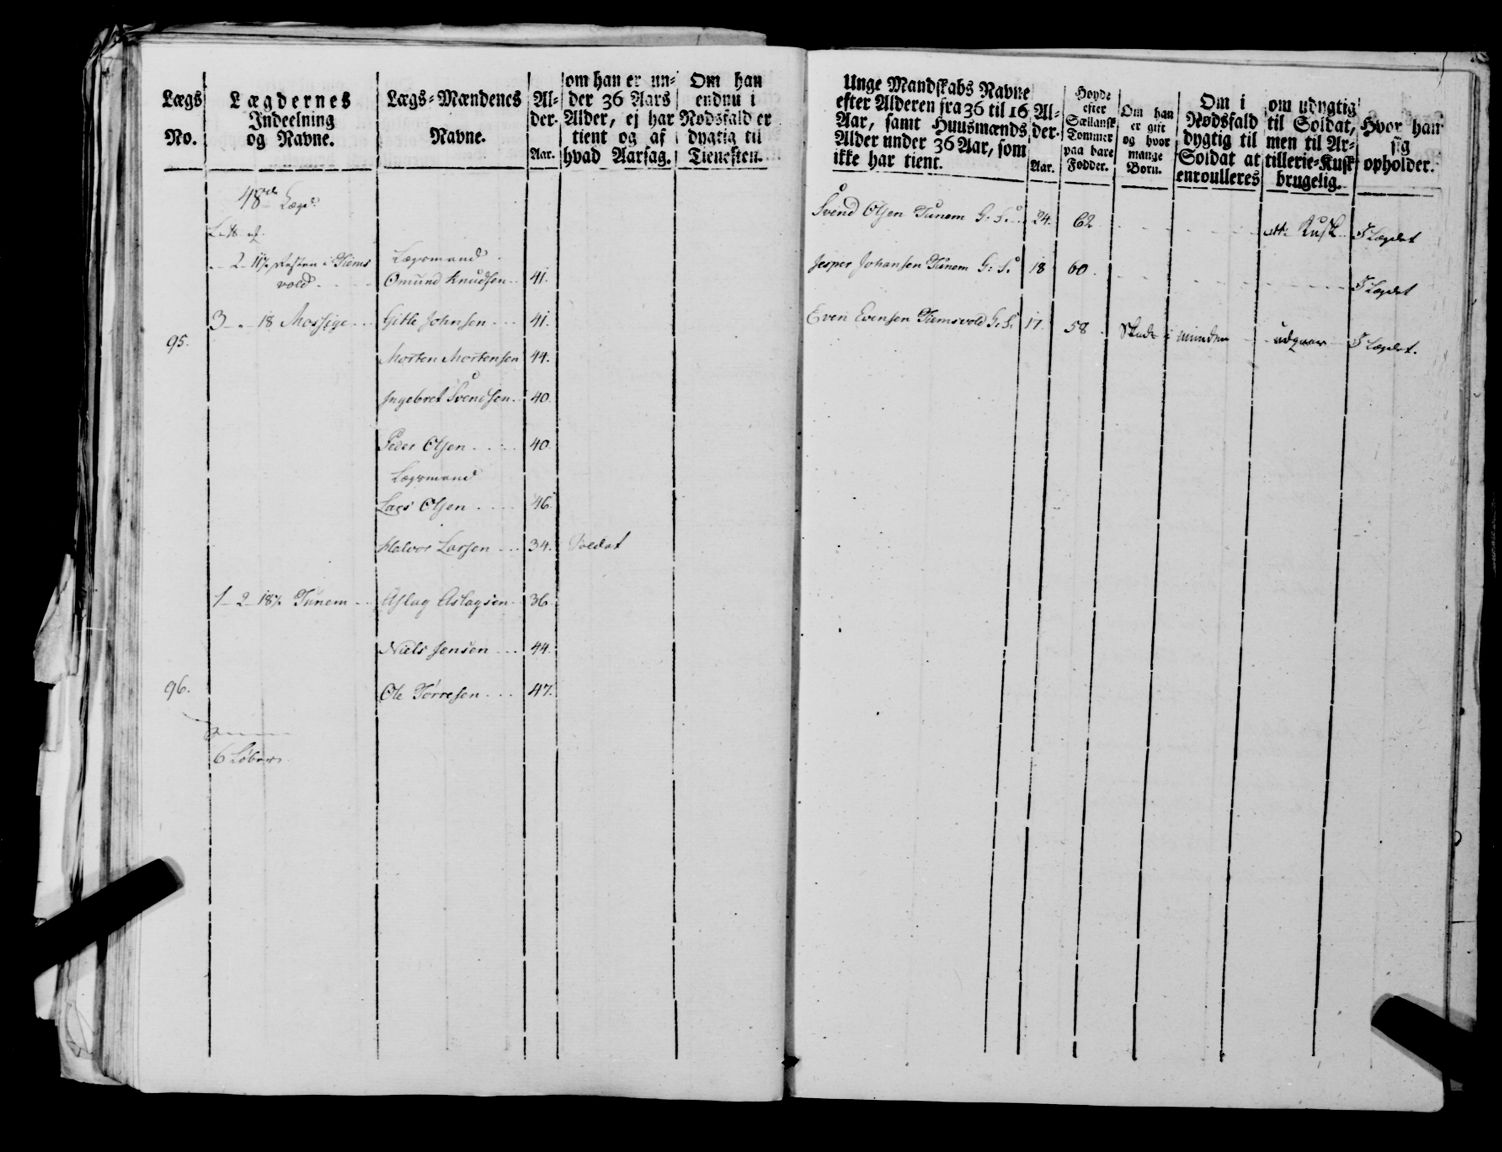 Lægs
No.
Lægdernes
Indeelning
og Navne.
Lægs-Mændenes
Navne.
Al-
der.
Aar.
om han er un-
der 36 Aars
Alder, ej har
tient og af
hvad Aarsag.
Om han
endnu i
Nødsfald er
dygtig til
Tienesten.
48de Lægd.
2 - 11½ Resten i Tiems
vold
Lægsmand
Omund Knudsen 41.
3 - 18 Mossige Gitle Johnsen 41.
95.
Morten Mortensen 44.
Ingebret Svendsen 40.
Peder Olsen 40
Lægsmand
Lars Olsen 46
Halvor Larsen 34. Soldat
1 - 2 - 18½ Tunem Aslag Aslagsen 36
Niels Jensen 44.
96.
Ole Torresen 47.
6
Unge Mandskabs Navne
efter Alderen fra 36 til 16
Aar, samt Huusmænds
Alder under 36 Aar, som
ikke har tient.
Al-
der.
Aar.
Høyde
efter
Sællansk
Tommer
paa bare
Fødder.
Om han
er gift
og hvor
mange
Børn.
Om i
Nødsfald
dygtig til
Soldat at
enroulleres
om udygtig
til Soldat,
men til Ar-
tillerie-Kusk
brugelig.
Hvor han
sig
opholder.
Svend Olsen Tunem G: S: 24. 62 Kusk I Lægdet
Jesper Johansen Tunem G: S: 18 60 I Lægdet
Even Evensen Tiemsvold G: S: 17. 58 Skade i munden udgaar I Lægdet.